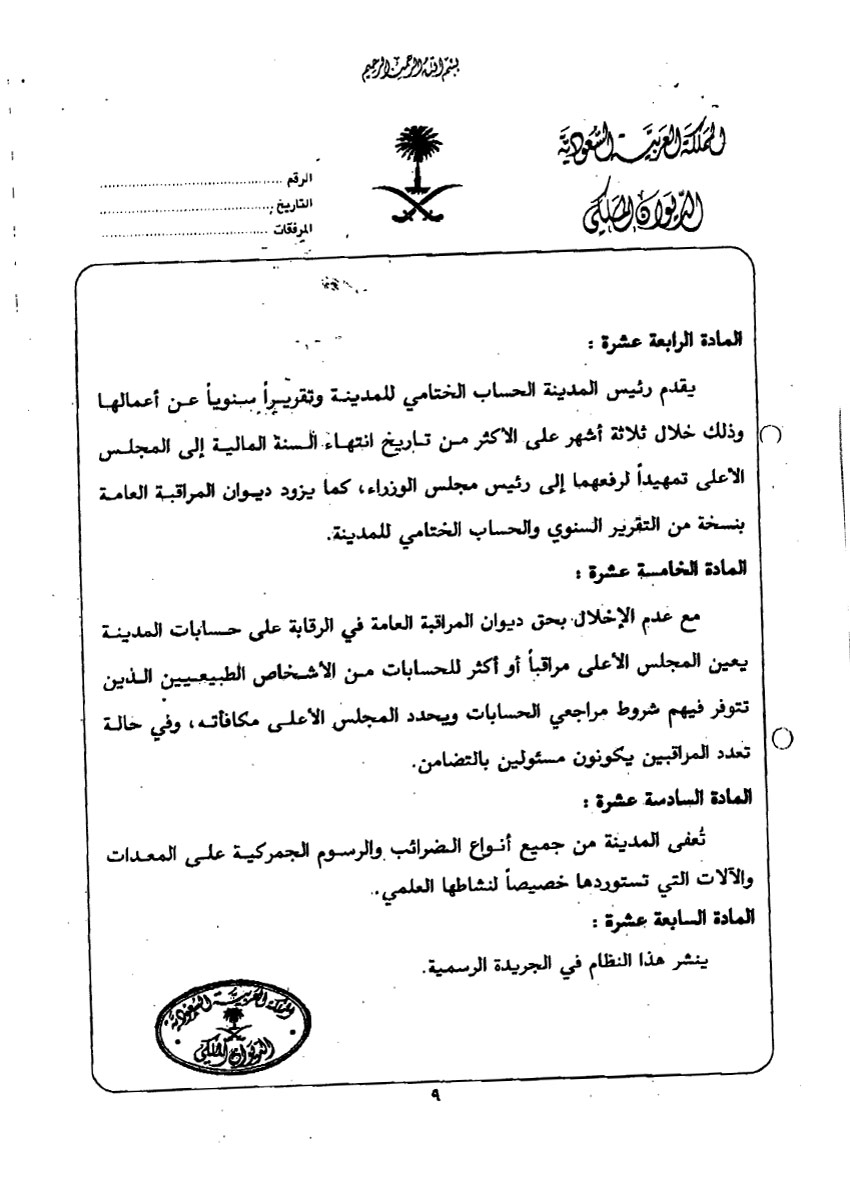 بسم الله الرحمن الرحيم
المملكة العربية السعودية
الديوان الملكي
الرقم
التاريخ
المرفقات
المادة الرابعة عشرة :
يقدم رئيس المدينة الحساب الختامي للمدينة وتقريراً سنوياً عن أعمالها
وذلك خلال ثلاثة أشهر على الأكثر من تاريخ انتهاء السنة المالية إلى المجلس
الأعلى تمهيداً لرفعهما إلى رئيس مجلس الوزراء، كما يزود ديوان المراقبة العامة
بنسخة من التقرير السنوي والحساب الختامي للمدينة.
المادة الخامسة عشرة :
مع عدم الإخلال بحق ديوان المراقبة العامة في الرقابة على حسابات المدينة
يعين المجلس الأعلى مراقباً أو أكثر للحسابات من الأشخاص الطبيعيين الذين
تتوفر فيهم شروط مراجعي الحسابات ويحدد المجلس الأعلى مكافأته، وفي حالة
تعدد المراقبين يكونون مسئولين بالتضامن.
المادة السادسة عشرة :
تُعفى المدينة من جميع أنواع الضرائب والرسوم الجمركية على المعدات
والآلات التي تستوردها خصيصاً لنشاطها العلمي.
المادة السابعة عشرة :
ينشر هذا النظام في الجريدة الرسمية.
المملكة العربية السعودية
الديوان الملكي
٩